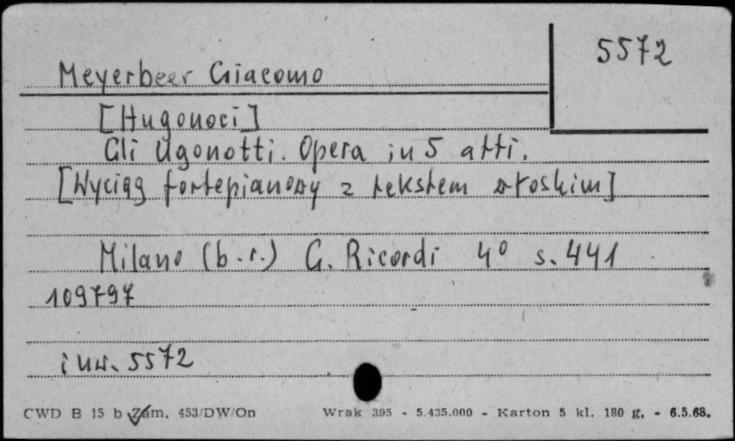 5572
Meyerbeer Giacomo
[Hugonoci]
Gli Ugonotti. Opera in 5 atti.
[Wyciąg fortepianowy z tekstem włoskim]
Milano (b.r.) G. Ricordi 4° s. 441
109797
inw. 5572
CWD B 15 b Zam. 453/DW/On Wrak 395 - 5.435.000 - Karton 5 kl. 180 g. - 6.5.68.